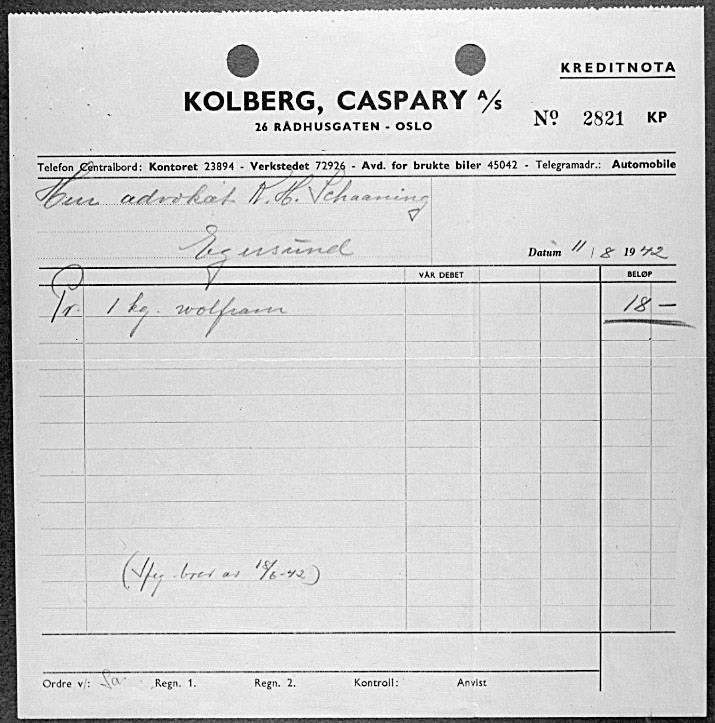 KREDITNOTA
KOLBERG, CASPARY A/S
26 RÅDHUSGATEN - OSLO
Nº 2821 KP
Telefon Centralbord: Kontoret 23894 - Verkstedet 72926 - Avd. for brukte biler 45042 - Telegramadr.: Automobile
Herr advokat K. H. Schaaning
Egersund
Datum 11/8 1942
VÅR DEBET BELØP
Pr. 1 kg. wolfram 18 —
( brev av 18/6-42)
Ordre v/: Sa. Regn. 1. Regn. 2. Kontroll: Anvist